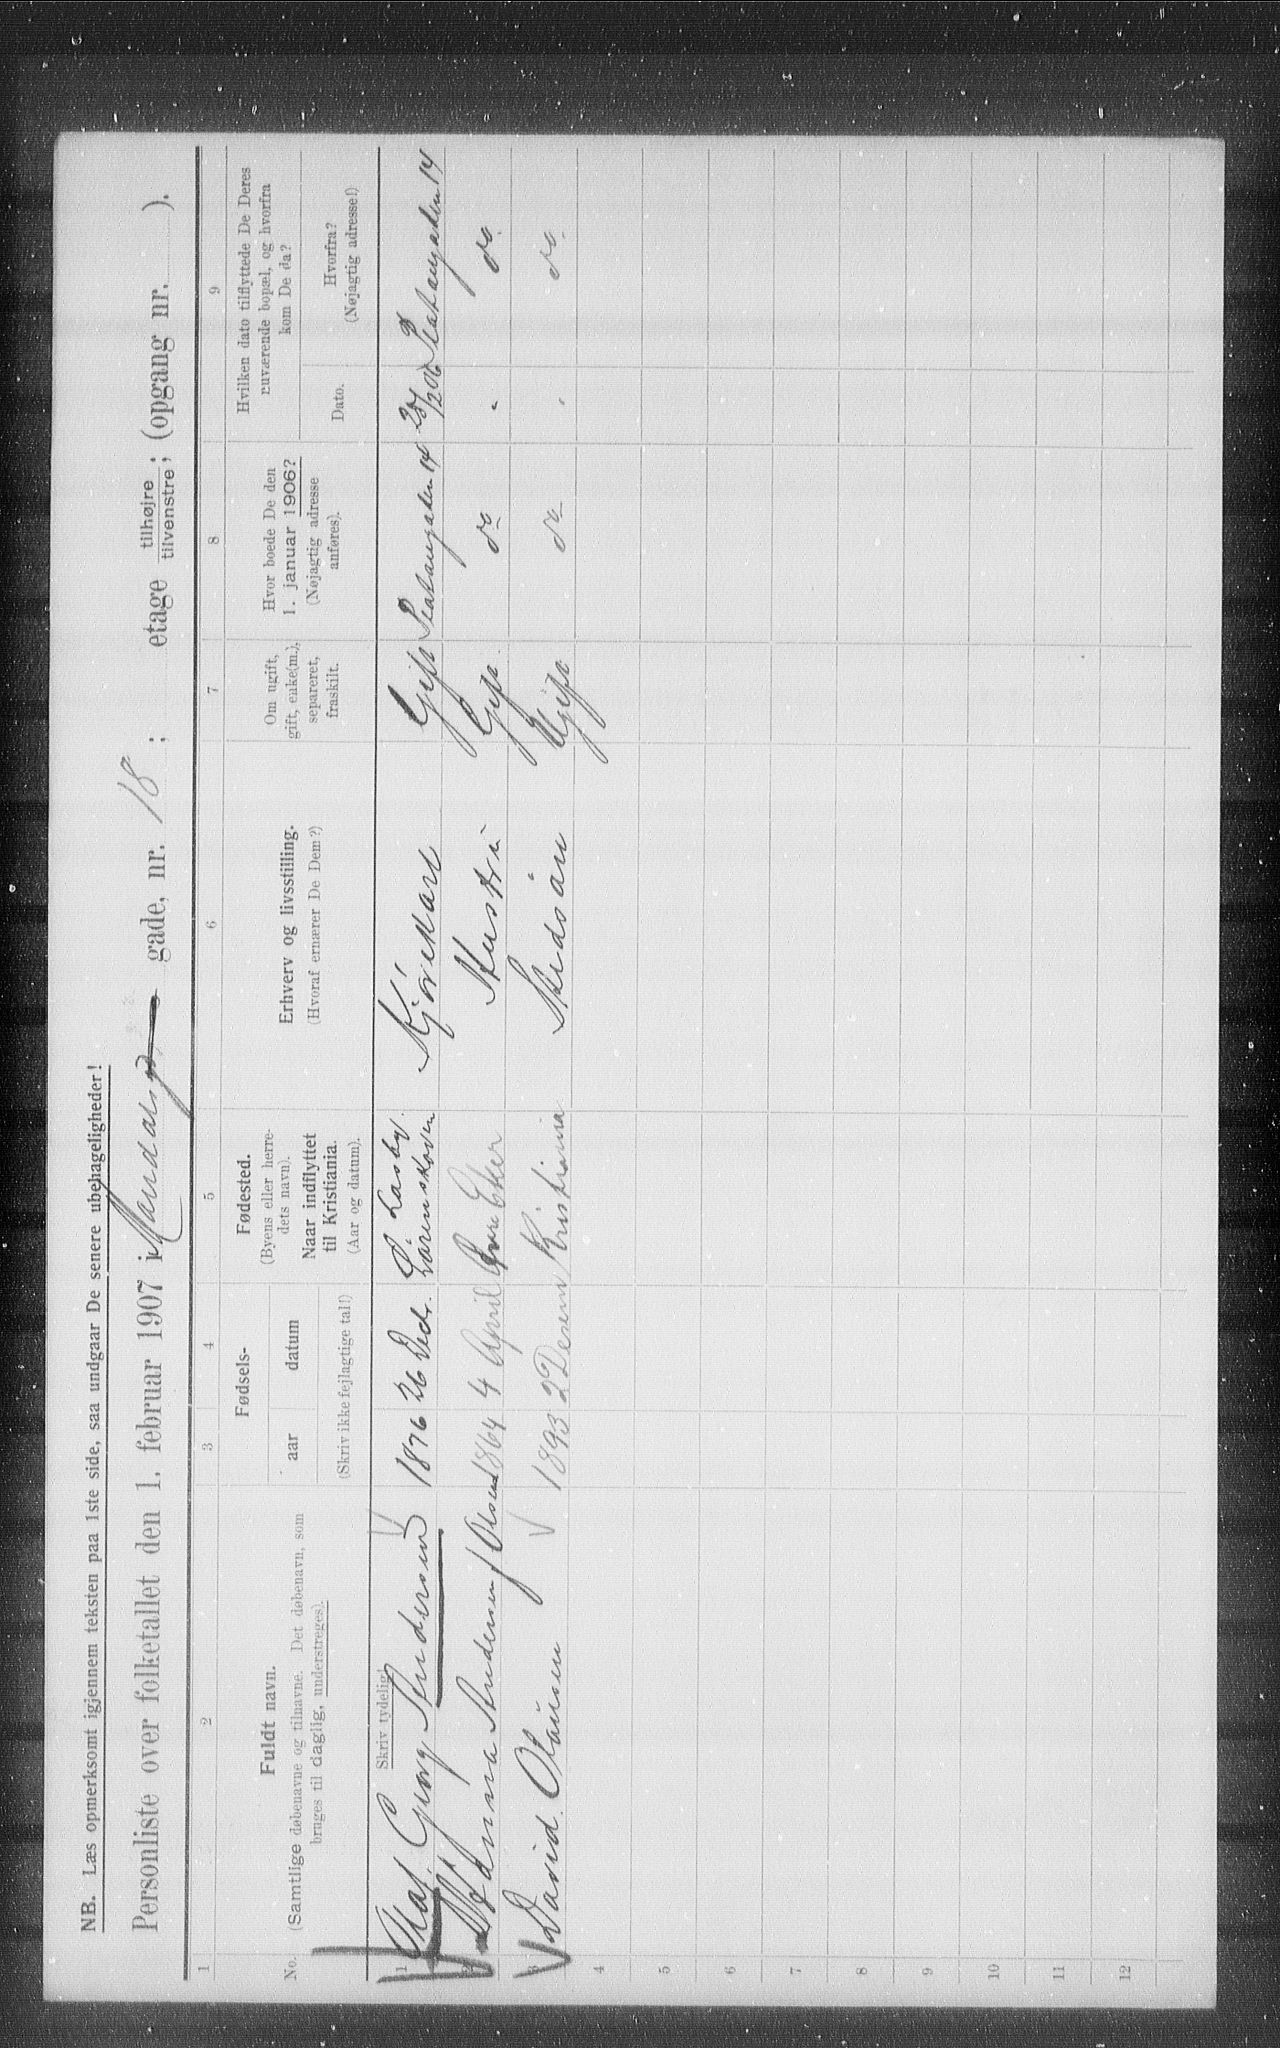 NB. Læs opmerksomt igjennem teksten paa 1ste side, saa undgaar De senere ubehageligheder!
Personliste over folketallet den 1. februar 1907 i Mandalsgd gade, nr. 18 ; etage tilhøjre / tilvenstre ; (opgang nr. ).
1 2 3 4 5 6 7 8 9
No.
Fuldt navn.
(Samtlige døbenavne og tilnavne. Det døbenavn, som
bruges til daglig, understreges).
Skriv tydelig!
Fødsels-
aar
datum
(Skriv ikke fejlagtige tal!)
Fødested.
(Byens eller herre-
dets navn).
Naar indflyttet
til Kristiania.
(Aar og datum).
Erhverv og livsstilling.
(Hvoraf ernærer De Dem?)
Om ugift,
gift, enke(m.),
separeret,
fraskilt.
Hvor boede De den
1. januar 1906?
(Nøjagtig adresse
anføres).
Hvilken dato tilflyttede De Deres
nuværende bopæl, og hvorfra
kom De da?
Dato.
Hvorfra?
(Nøjagtig adresse!)
1 Olaf Georg Andersen 1876 26 Decbr. Gift Platougaden 14 Platougaden 14
2 Anna Andersen f Olsen 1864 4 April Øvre Eker Hustru Gift do do
3 David Olausen 1893 2 Desem Kristiania Ugift do do
4
5
6
7
8
9
10
11
12